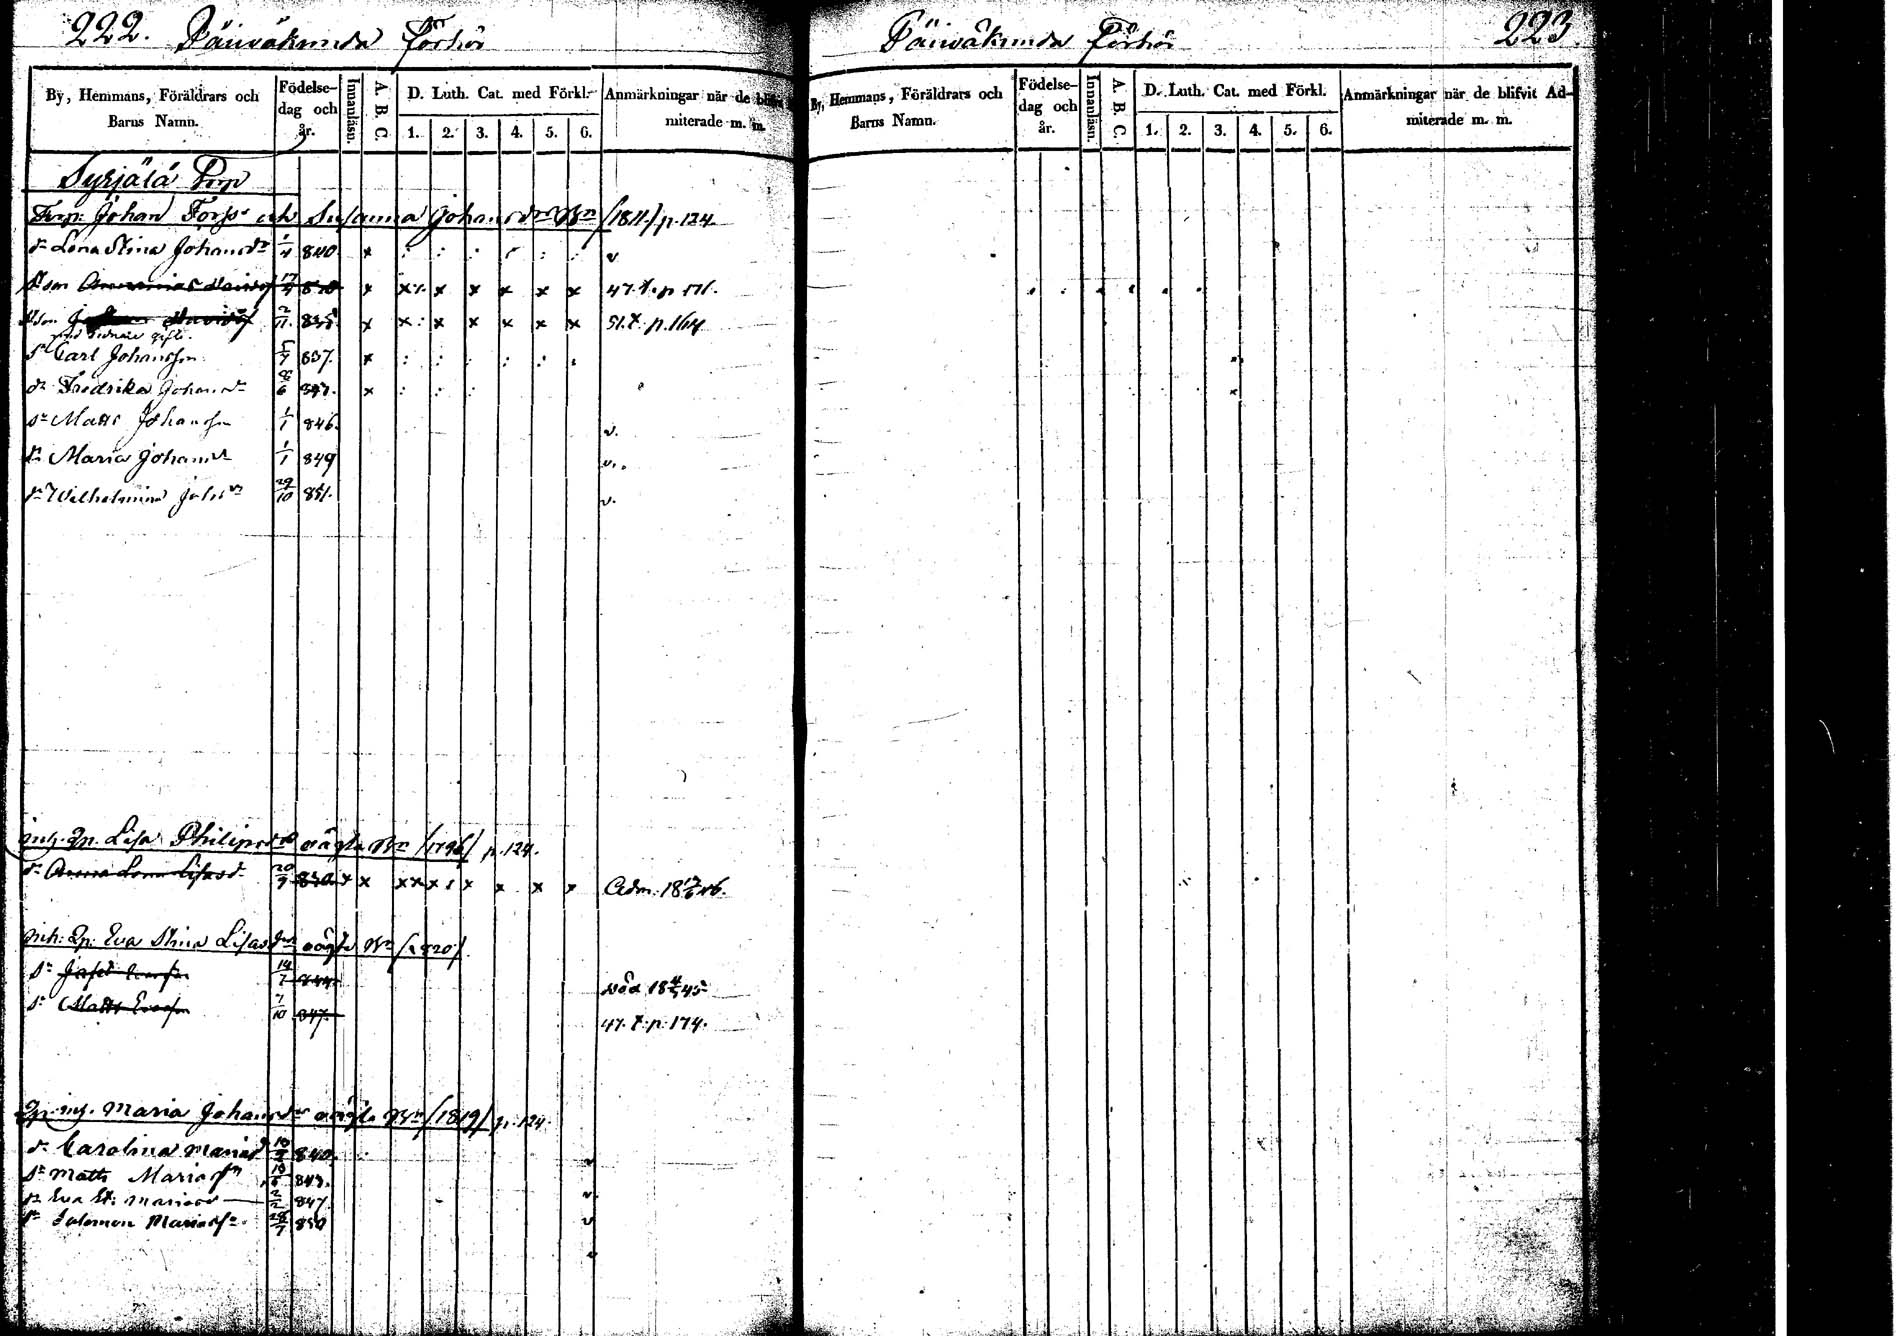 222. Päiväkunda Förhör
By, Hemmans, Föräldrars och Barns Namn.
Födelse-dag och år.
Innanläsn.
A. B. C.
D. Luth. Cat. med Förkl.
1. 2. 3. 4. 5. 6.
Anmärkningar när de blifvit
miterade m. m.
Syrjälä Torp
Torp. Johan och Susanna Johansdr Bn /1811/ p. 124
dr Lena Stina Johansdr 1/4 840. x v
son 17/4 x x x x x x x 47. p. 171.
son 2/11. 835 x x x x x x x 51. p. 164
sn Carl Johansson 5/7 837. x
dr Fredrika Johansdr 8/6 843. x
sn Matts Johansson 1/1 846. v.
dr Maria Johansdr 1/1 849 v.
dr Wilhelmina Johsdr 29/10 851. v.
inh. Qp. Lisa Philipsdr oägta Bn /1796/ p. 124.
dr Anna Lena Lisasdr 20/9 830. x x x x x x x x x Adm. 18 46.
inh: Qp: Eva Stina Lisasdr oägta Bn /1820/
sn Josef Evasson 14/7 844 död 18 45
sn Matts Evasson 7/10 847. 47. p. 174.
Qp. inh. Maria Johansdr oägta Bn /1819/ p. 124
dr Carolina Mariasd 840. v
sn Matts Mariasn 843. v
dr Eva St: Mariasd 2/2 847. v
sn Salomon Mariass. 28/7 850 v
Päiväkunda Förhör 223.
By, Hemmans, Föräldrars och Barns Namn.
Födelse-dag och år.
Innanläsn.
A. B. C.
D. Luth. Cat. med Förkl.
1. 2. 3. 4. 5. 6.
Anmärkningar när de blifvit Ad-
miterade m. m.